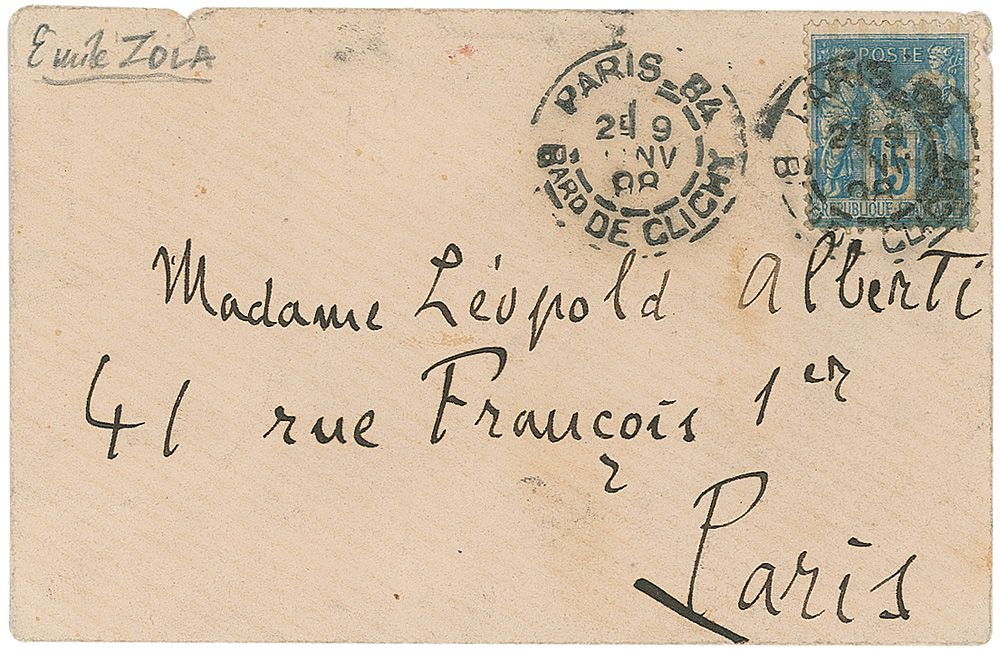 Emile ZOLA
PARIS_84
2E 9
NV
98
BARD DE CLICHY
POSTE
15
RÉPUBLIQUE FRANÇAISE
Madame Léopold Alberti
41 rue François 1er
Paris